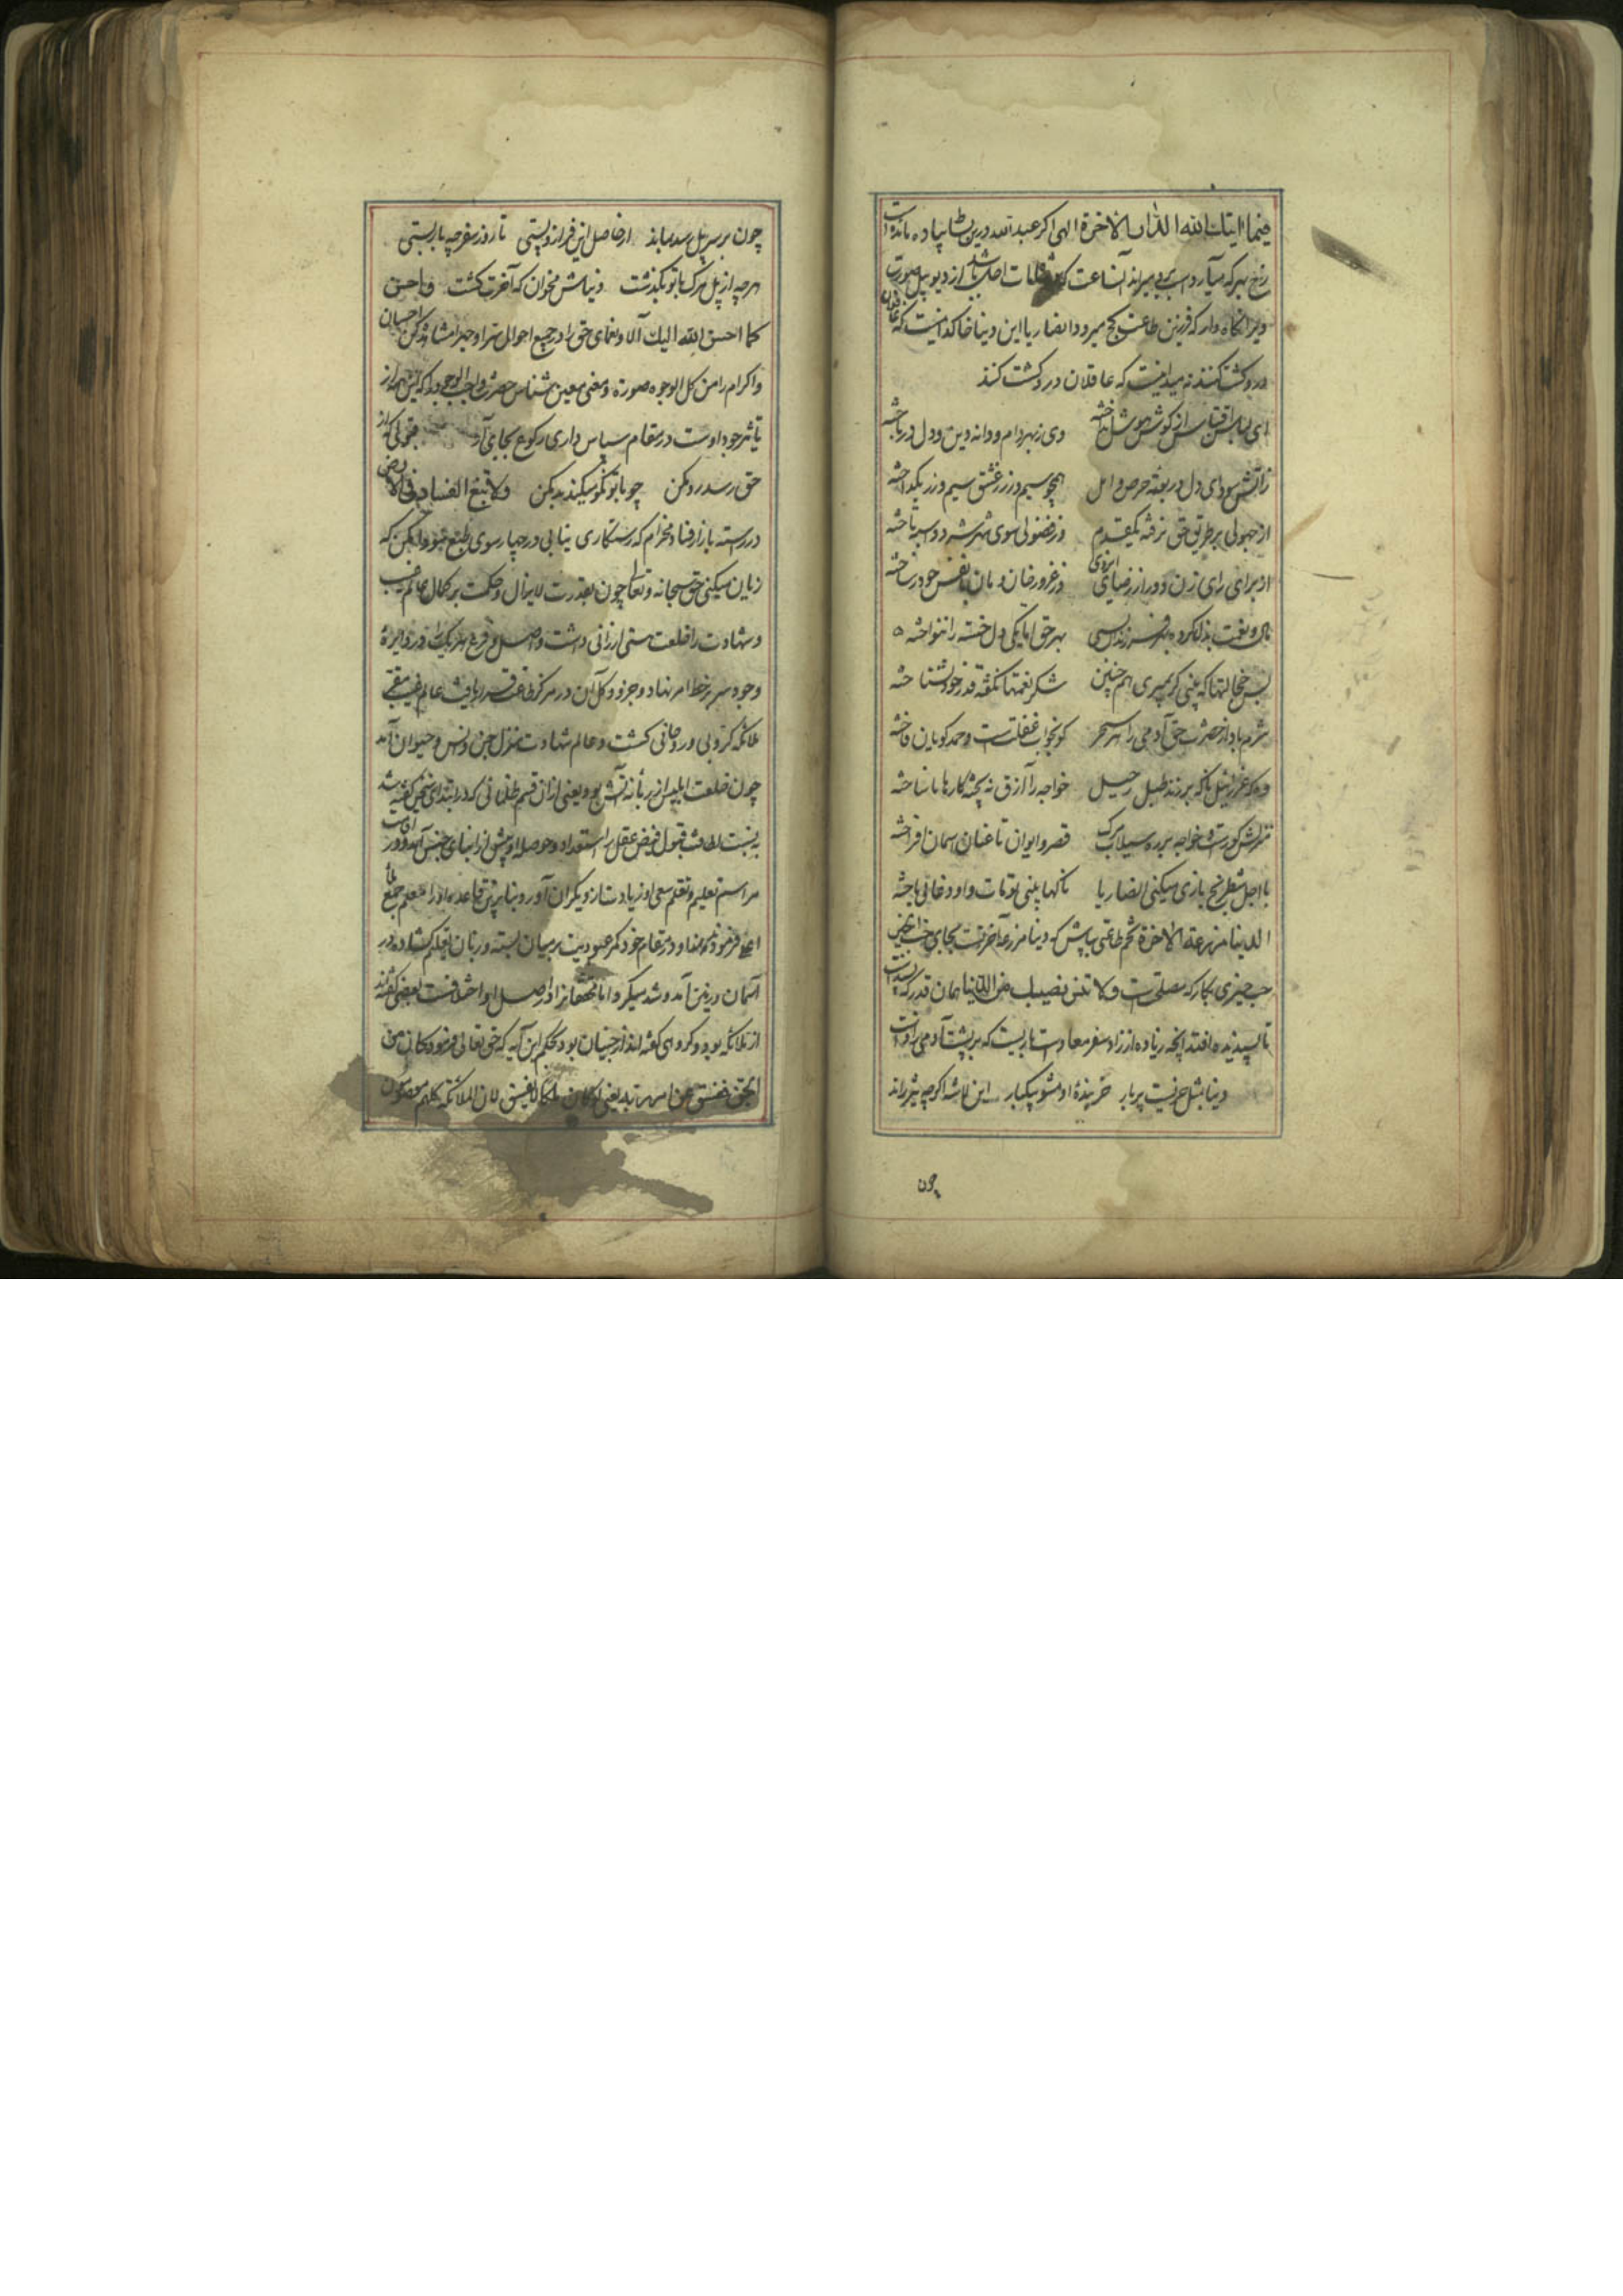 فیما اتیک الله الدار الاخرة الهی اکر عبد الله درین بساط پیاده مانده است
رخ بهر که میآرد اسب بر وی میراند آنساعت که شاه مات اجل باشد از دیو پیل صورت
ویرا نکاه دار که فرزین طاعتش کج میرود انصاریا این دنیا خاکدانیست که غافلان
درو کشت کنند نه میدانیست که عاقلان درو کشت کنند
ای لباس از کوش هوش انداخته وی زبهر دام و دانه دین و دل درباخته
زاتش سودای دل در بوته حرص و امل همچو سیم و زر ز عشق سیم و زر بکداخته
از جهولی بر طریق حق نرفته یکقدم وز فضولی سوی شهر شر دو اسبه تاخته
از برای رای زن دور از رضای ایزدی وز غرور خان و مان با نفس خود درساخته
مال و نعمت بذل کرده بهر فرزندان بسی بهر حق اما یکی دل خسته را ننواخته
بس خجالتها که بینی کر بمیری هم چنین شکر نعمتها نکفته قدر خود نشناخته
شرم باد از حضرت حق آدمی را هر سحر کو بخواب غفلتست و حمد کویان فاخته
وه که عزرائیل ناکه بر زند طبل رحیل خواجه را ازرق نه پخته کارها ناساخته
منزلش کورست و خواجه بر ره سیلاب مرک قصر و ایوان تا عنان آسمان افراخته
با اجل شطرنج بازی میکنی انصاریا ناکهان بینی که مات و او دغائی باخته
الدنیا مزرعة الاخرة تخم طاعتی بپاش که دنیا مزرعه آخرتست بجای خدا چنین
چیزی بکار که مصلحتست ولا تنس نصیبک من الدنیا همان قدر که
تا پسندیده افتد آنچه زیاده از زاد سفر معادست باریست که بر پشت آدمی زادست
دنیا بمثل خریست پر بار خربندهٔ او مشو بیکبار این لاشه اکرچه تیز راند
چون
چون بر سر پل رسد بماند از حاصل این فراز و پستی تا روز سفر چه بار بستی
هرچه از پل مرک با تو بکذشت دنیاش مخوان که آخرت کشت واحسن
کما احسن الله الیک آلا و نعمای حق را در جمیع احوال سرا و جهرا مشاهده کن احسان
و اکرام را من کل الوجوه صورة و معنی معین شناس حضرت واجب الوجود را که این همه از
تأثیر جود اوست در مقام سپاس داری رکوع بجای آر قبولی کز
حق رسد رد مکن چو با تو نکو میکند بد مکن ولا تبغ الفساد فی الارض
در رسته بازار فنا مخرام که رستکاری نیابی در چهار سوی طبع سودا مکن که
زیان میکنی حق سبحانه و تعالی چون بقدرت لایزال و حکمت بر کمال عالم غیب
و شهادت را خلعت هستی ارزانی داشت و اصل و فرع هر یک را در دایرهٔ
وجود سر بر خط امر نهاد و جزو و کل آن در مرکز طاعت قرار یافت عالم غیب مقر
ملائکه کروبی و روحانی کشت و عالم شهادت منزل جن و انس و حیوان آمد
چون خلعت ابلیس از زبانه آتش بود یعنی از آن قسم ظلمانی که در ابتدای سخن کفته شد
به نسبت لطافت قبول فیض عقل را استعداد و حوصله او بیش از ابنای جنس آمد و در اقامت
مراسم تعلیم و تعلم سعی او زیادت از دیکران آورد بنا برین قاعده او را معلم جمع ملأ
اعلی فرمودند و او در مقام خود کمر عبودیت بر میان بسته و زبان بتعلیم کشاده در
آسمان و زمین آمد و شد میکرد اما محققانرا در اصل او اختلافست بعضی کفته‌اند
از ملائکه بود و کروهی کفته‌اند از جنیان بود بحکم این آیه که حق تعالی فرمود کان من
الجن ففسق عن امر ربه یعنی لو کان ملکا لا یفسق لان الملائکة کلهم معصومون